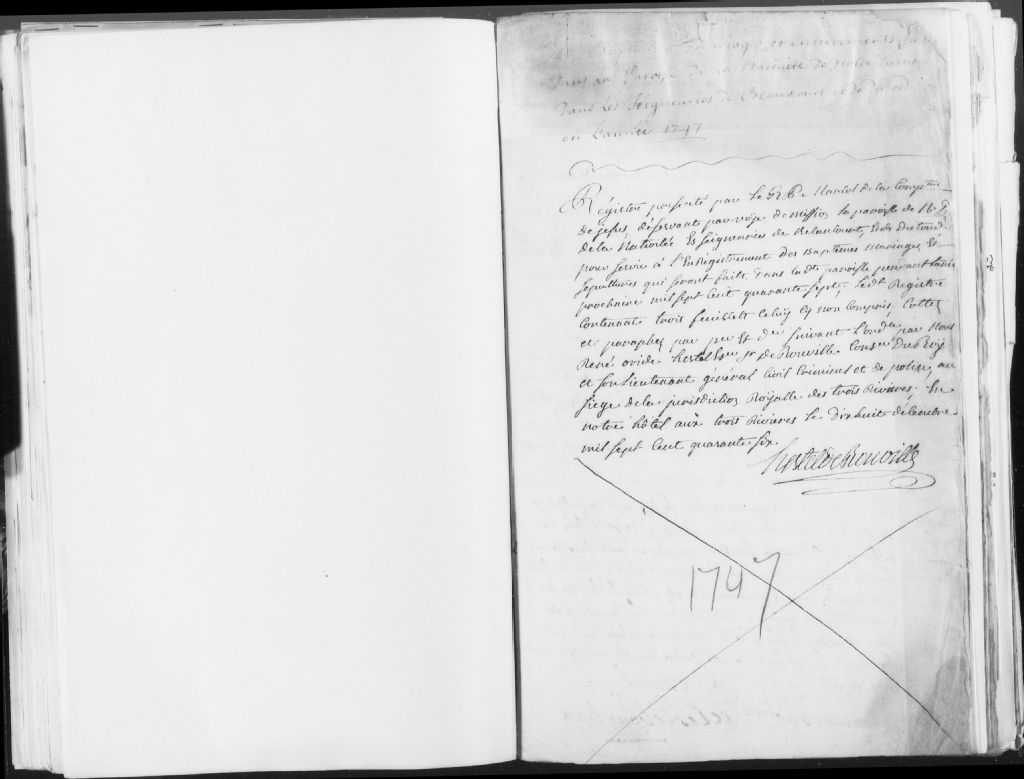 mariages et enterrements
Dans la Paroisse de la Nativité de Notre Dame
Dans les Seigneuries de Becancour et de
en L'année 1747
Régistre presenté par Le R. P. de la Comp.nie
de jesus, déservante par voye de missio, la paroisse de N. D.
de la Nativité Es Seigneuries de Bekancourt, Et de Dutord.
pour servir à L'Enregistrement des Baptemes mariages, Et
sepultures qui seront faits, Dans lad.te paroisse pendant l'année
prochaine mil sept Cent quarante sept; Led.t Registre
Contenant trois feuillets Celuy cy non Compris, Cottez
et paraphez par per Et der suivant L'ord.ce par Nous
René ovide hertel Es.r s.r De Rouville Cons.er Du Roy
et son Lieutenant général Civil Criminel et de police, au
siège de la jurisdictio, Royalle des trois Rivieres; En
notre hôtel aux trois Rivieres Le Dix huit décembre
mil sept Cent quarante six.
hertel de Rouville
1747